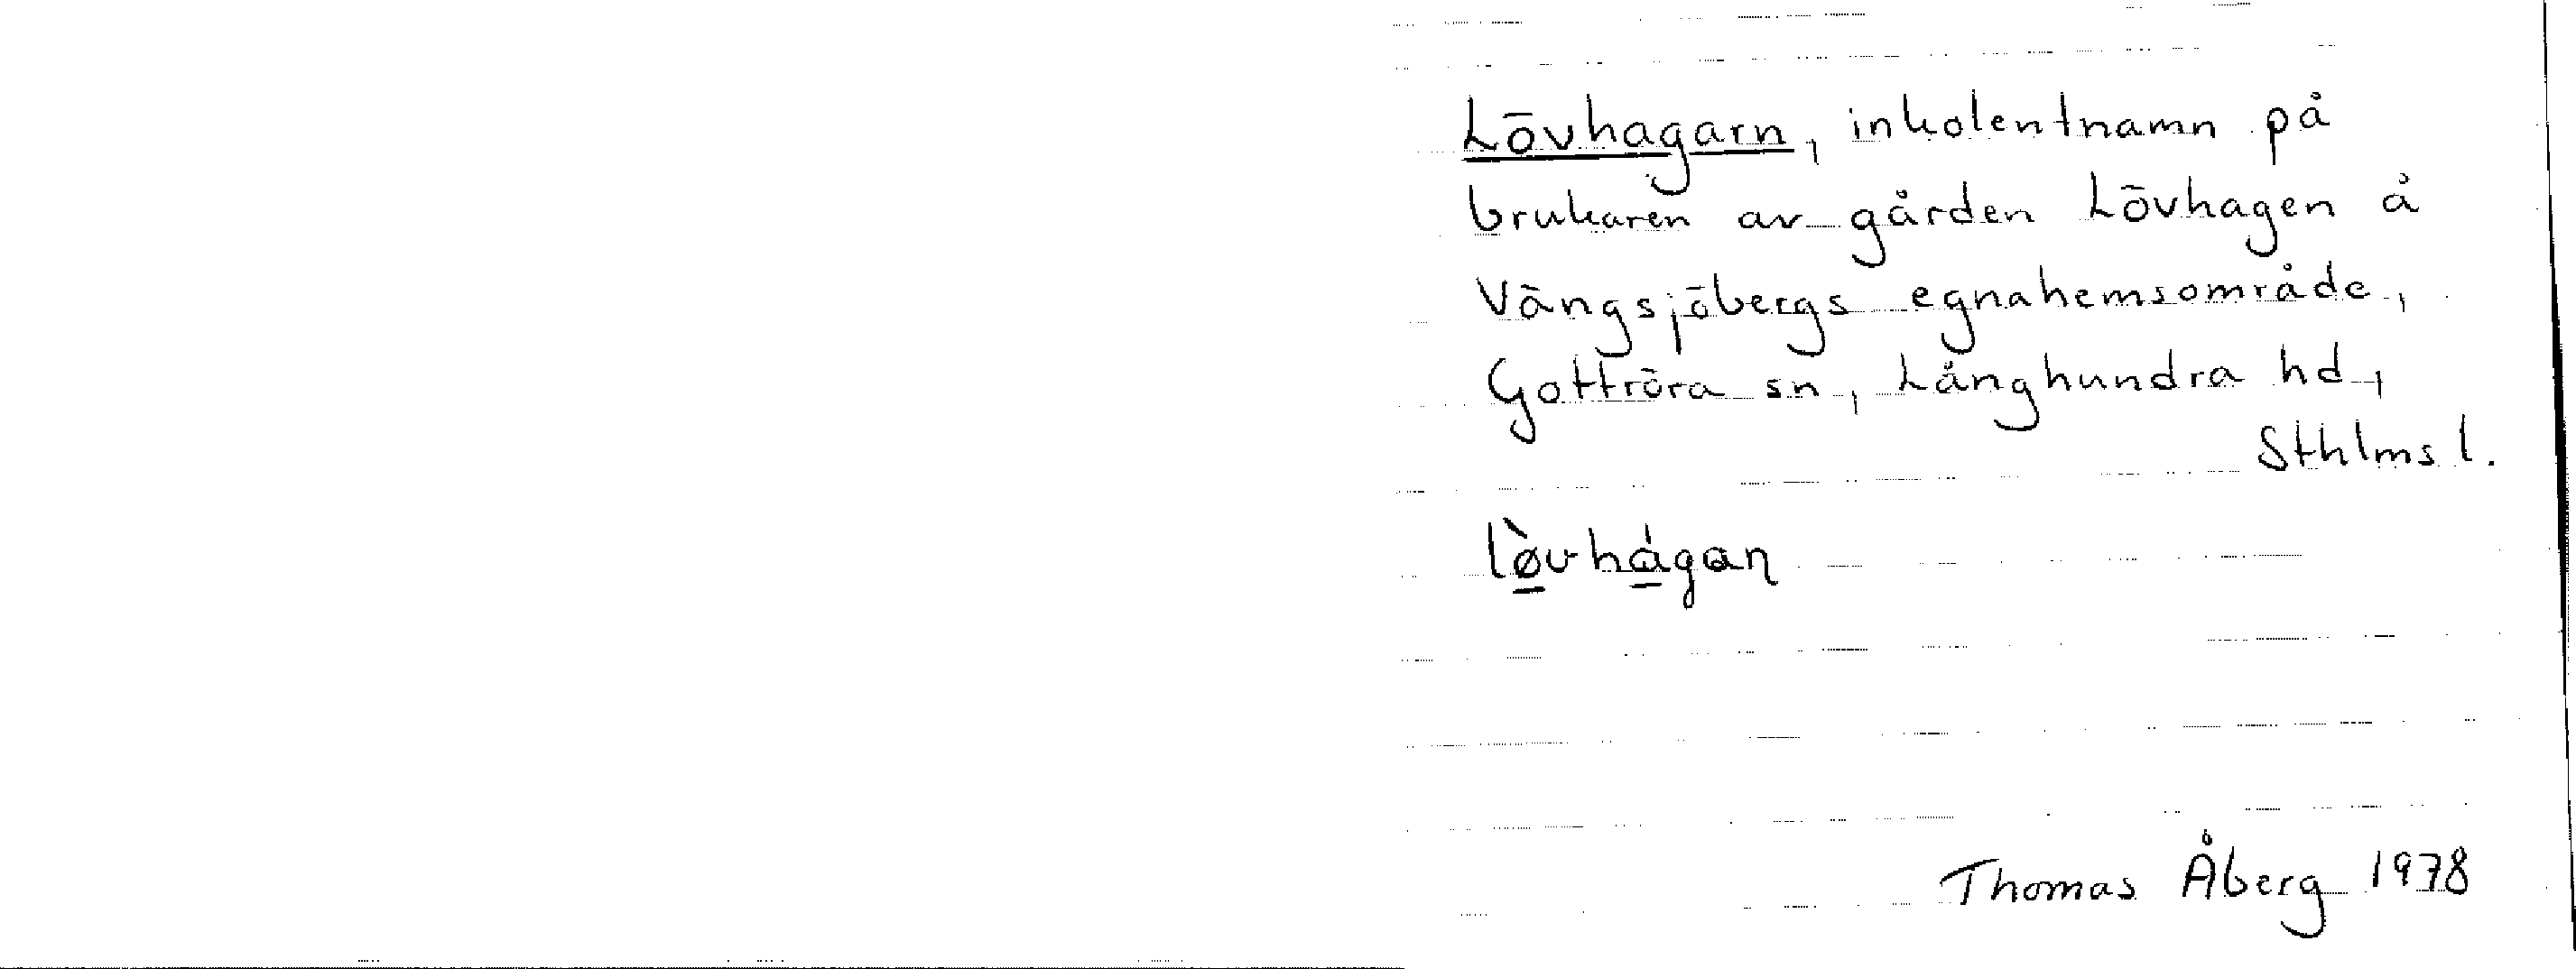 Lövhagarn, inkolentnamn på
brukaren av gården Lövhagen å
Vängsjöbergs egnahemsområde,
Gottröra sn, Långhundra hd,
Sthlms l.
lø̀vhágaṇ
Thomas Åberg 1978